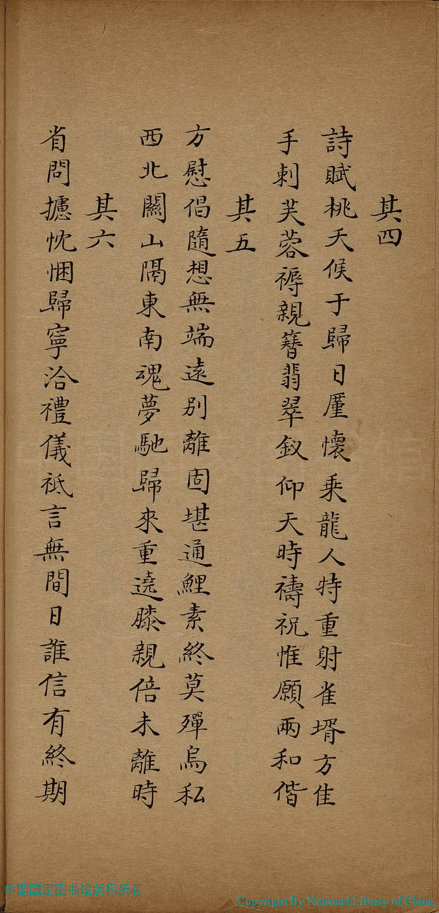 其四
詩賦桃夭候于歸日厪懷乘龍人特重射雀壻方佳
手刺芙蓉褥親簪翡翠釵仰天時禱祝惟願兩和偕
其五
方慰倡隨想無端遠別離固堪通鯉素終莫殫烏私
西北關山隔東南魂夢馳歸來重遶膝親倍未離時
其六
省問攄忱悃歸寧洽禮儀祇言無間日誰信有終期
中国国家图书馆
Copyright By National Library of China